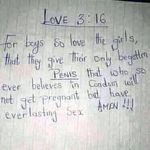 LOVE 3:16
For boys so love the girls,
that they give their only begotten
PENIS that who so
ever believes in Condum will
not get pregnant but have
everlasting sex
AMEN !!!